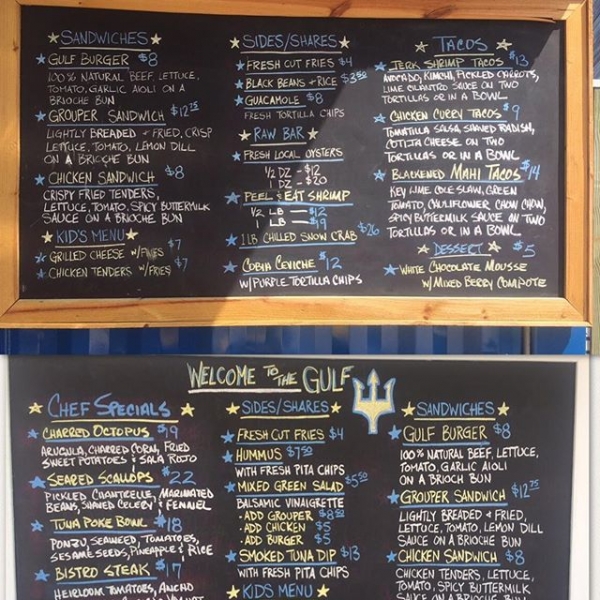 SANDWICHES
GULF BURGER $8
100% NATURAL BEEF, LETTUCE,
TOMATO, GARLIC AIOLI ON A
BRIOCHE BUN
GROUPER SANDWICH $12.75
LIGHTLY BREADED + FRIED, CRISP
LETTUCE, TOMATO, LEMON DILL
ON A BRIOCHE BUN
CHICKEN SANDWICH $8
CRISPY FRIED TENDERS,
LETTUCE, TOMATO, SPICY BUTTERMILK
SAUCE ON A BRIOCHE BUN
KID'S MENU
GRILLED CHEESE W/FRIES $7
CHICKEN TENDERS W/FRIES $7
SIDES/SHARES
FRESH CUT FRIES $4
BLACK BEANS + RICE $3.50
GUACAMOLE $8
FRESH TORTILLA CHIPS
RAW BAR
FRESH LOCAL OYSTERS
1/2 DZ - $12
1 DZ - $20
PEEL & EAT SHRIMP
1/2 LB - $12
1 LB - $19
1 LB CHILLED SNOW CRAB $26
COBIA CEVICHE $12
W/ PURPLE TORTILLA CHIPS
TACOS
JERK SHRIMP TACOS $13
AVOCADO, KIMCHI, PICKLED CARROTS,
LIME CILANTRO SAUCE ON TWO
TORTILLAS OR IN A BOWL
CHICKEN CURRY TACOS $9
TOMATILLA SALSA, SHAVED RADISH,
COTIJA CHEESE ON TWO
TORTILLAS OR IN A BOWL
BLACKENED MAHI TACOS $14
KEY LIME COLE SLAW, GREEN
TOMATO, CAULIFLOWER CHOW CHOW,
SPICY BUTTERMILK SAUCE ON TWO
TORTILLAS OR IN A BOWL
DESSERT $5
WHITE CHOCOLATE MOUSSE
W/ MIXED BERRY COMPOTE
WELCOME TO THE GULF
CHEF SPECIALS
CHARRED OCTOPUS $19
ARUGULA, CHARRED CORN, FRIED
SWEET POTATOES + SALA ROJO
SEARED SCALLOPS $22
PICKLED CHANTERELLE, MARINATED
BEANS, SHAVED CELERY + FENNEL
TUNA POKE BOWL $18
PONZU, SEAWEED, TOMATOES,
SESAME SEEDS, PINEAPPLE + RICE
BISTRO STEAK $17
HEIRLOOM TOMATOES, ANCHO
SIDES/SHARES
FRESH CUT FRIES $4
HUMMUS $7.50
WITH FRESH PITA CHIPS
MIXED GREEN SALAD $5.50
BALSAMIC VINAIGRETTE
-ADD GROUPER $8.50
-ADD CHICKEN $5
-ADD BURGER $5
SMOKED TUNA DIP $13
WITH FRESH PITA CHIPS
KID'S MENU
SANDWICHES
GULF BURGER $8
100% NATURAL BEEF, LETTUCE,
TOMATO, GARLIC AIOLI
ON A BRIOCH BUN
GROUPER SANDWICH $12.75
LIGHTLY BREADED + FRIED,
LETTUCE, TOMATO, LEMON DILL
SAUCE ON A BRIOCHE BUN
CHICKEN SANDWICH $8
CHICKEN TENDERS, LETTUCE,
TOMATO, SPICY BUTTERMILK
SAUCE ON A BRIOCHE BUN